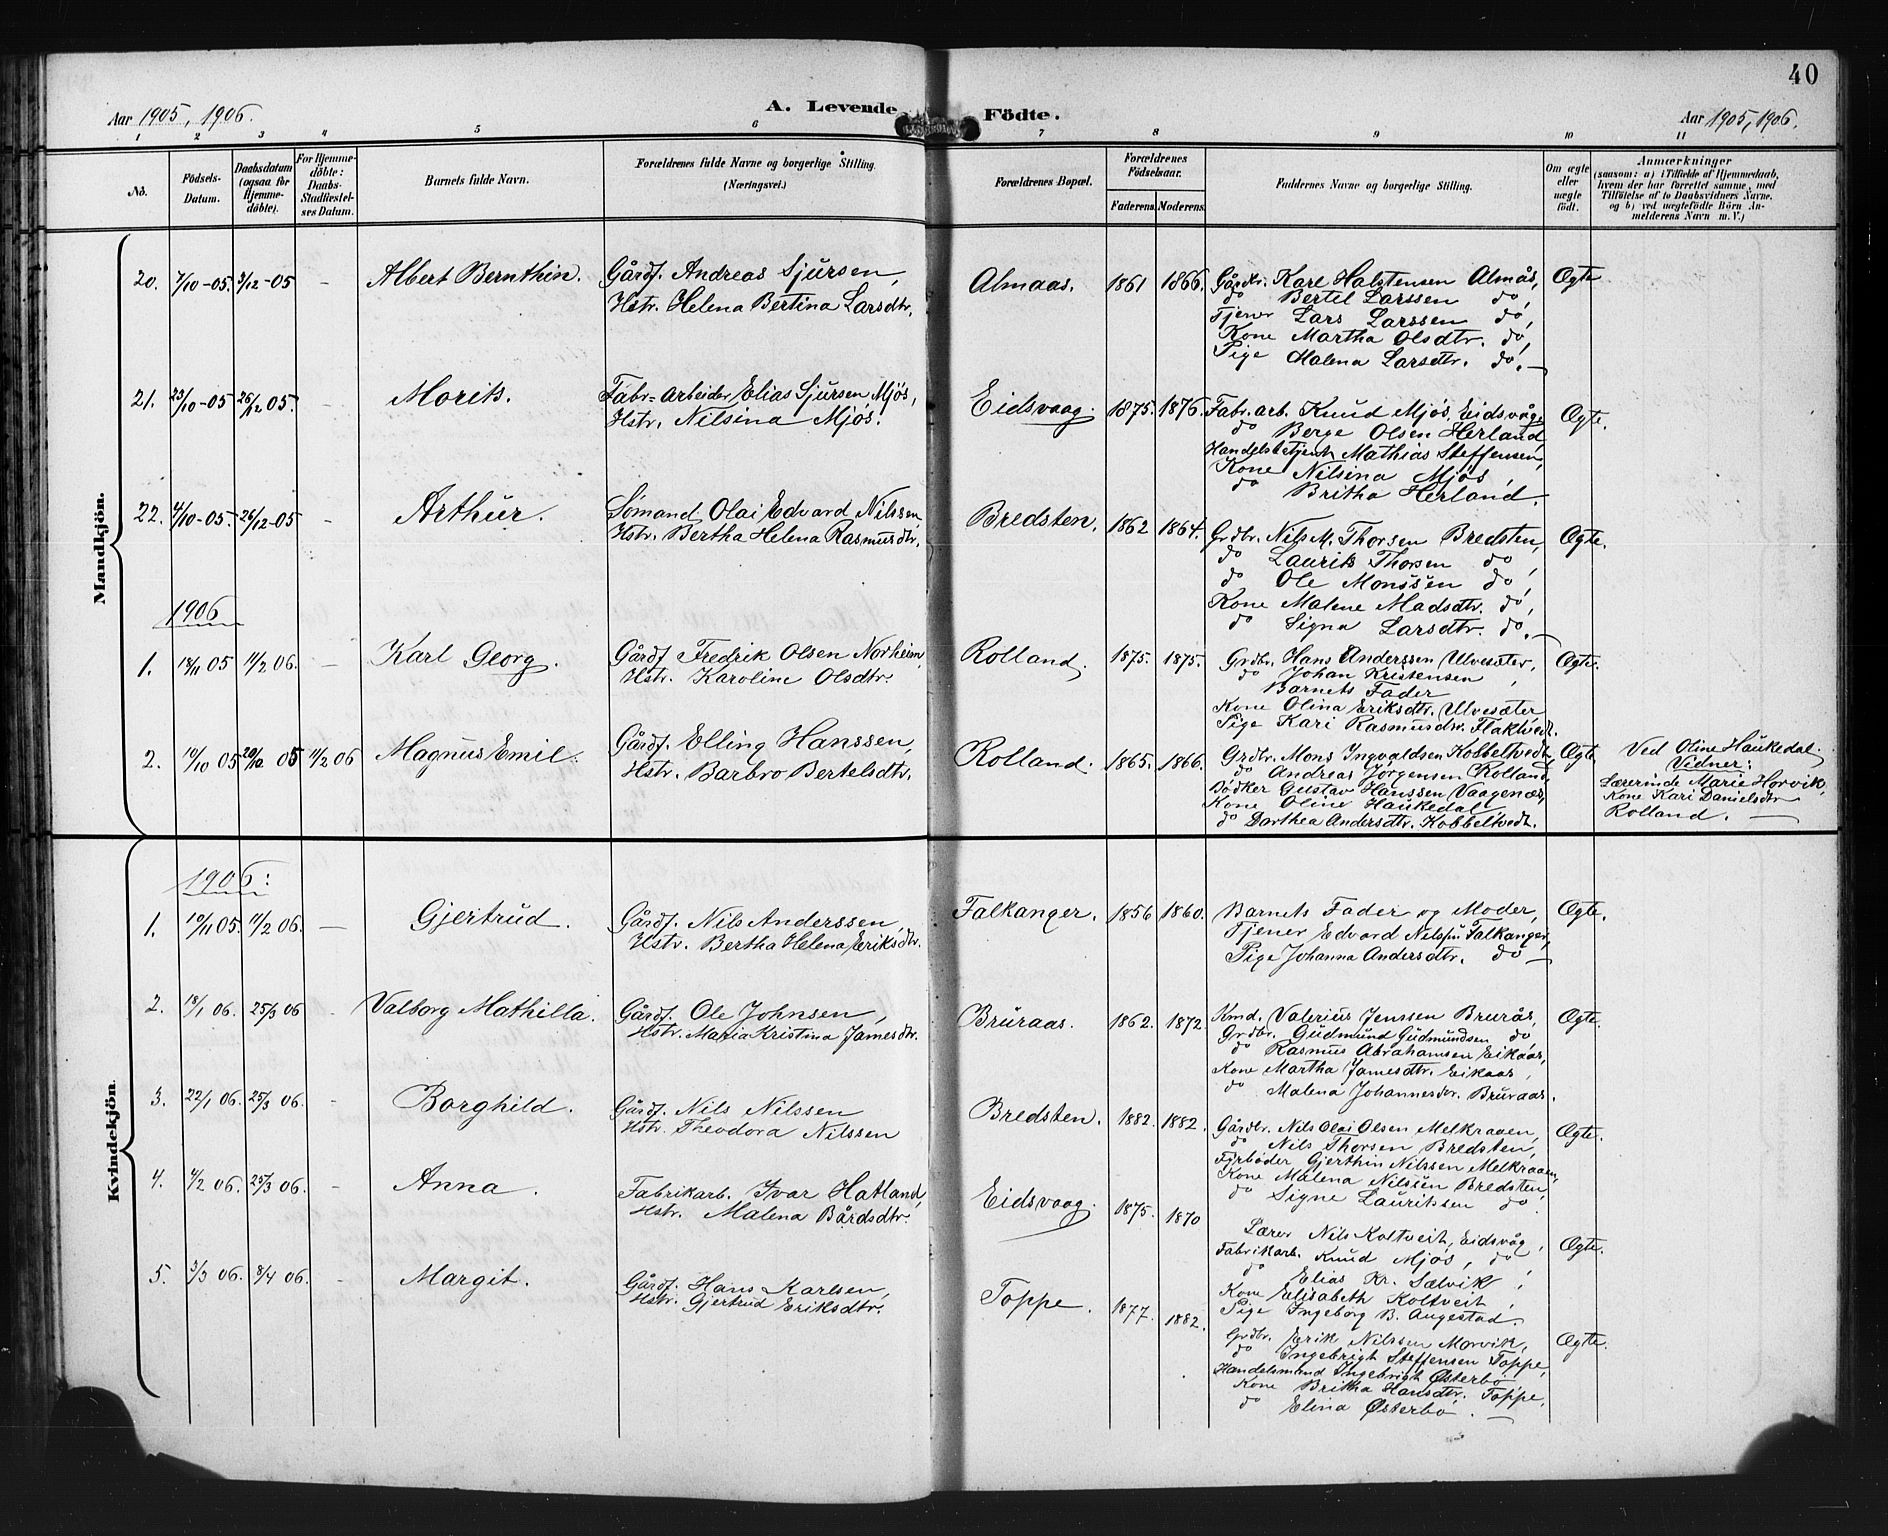 40
Aar 1905, 1906.
A. Levende Fødte.
Aar 1905, 1906.
1 2 3 4 5 6 7 8 9 10 11
No.
Fødsels-Datum.
Daabsdatum (ogsaa for Hjemme-døbte).
For Hjemme-døbte: Daabs-Stadfæstel-ses Datum.
Barnets fulde Navn.
Forældrenes fulde Navne og borgerlige Stilling.
(Næringsvei.)
Forældrenes Bopæl.
Forældrenes Fødselsaar.
Faderens Moderens.
Faddernes Navne og borgerlige Stilling.
Om ægte eller uægte født.
Anmærkninger
(saasom: a) i Tilfælde af Hjemmedaab,
hvem der har forrettet samme, med
Tilføielse af to Daabsvidners Navne,
og b) ved uægtefødte Børn An-
melderens Navn m. V.)
Mandkjøn.
20. 7/10-05. 3/12-05 - Albert Bernthin. Gårdf. Andreas Sjursen, Almaas. 1861 1866. Gårdbr. Karl Halstensen Almås, Ægte
Hstr. Helena Bertina Larsdtr. do Bertel Larssen do,
Tjener Lars Larssen do,
Kone Martha Olsdtr. do,
Pige Malena Larsdtr. do.
21. 23/10-05 26/12 05. Morits. Fabr=arbeider Elias Sjursen Mjøs, Eidsvaag. 1875. 1876. Fabr. arb. Knud Mjøs, Eidsvåg, Ægte.
Hstr. Nilsina Mjøs. do Berge Olsen Herland,
Handelsbetjent Mathias Steffensen,
Kone Nilsina Mjøs,
do Britha Herland.
22. 4/10-05. 26/12-05 - Arthur. Sømand Olai Edvard Nilssen Bredsten. 1862 1864. Grdbr. Nils M. Thorsen Bredsten, Ægte.
Hstr. Bertha Helena Rasmusdtr. do Laurits Thorsen do,
do Ole Monssen do,
Kone Malene Madsdtr. do,
do Signa Larsdtr. do.
1906
1. 18/11 05 11/2 06. - Karl Georg. Gårdf. Fredrik Olsen Norheim, Rolland. 1875. 1875. Grdbr. Hans Anderssen Ulvesæter, Ægte.
Hstr. Karoline Olsdtr. do Johan Kristensen,
Barnets Fader
Kone Olina Eriksdtr. Ulvesæter
Pige Kari Rasmusdtr. Flaktvedt.
2. 10/10 05 20/12 05 11/2 06 Magnus Emil. Gårdf. Elling Hanssen, Rolland. 1865. 1866. Grdbr. Mons Ingvaldsen Kobbeltvedt, Ægte Ved Oline Haukedal.
Hstr. Barbro Bertelsdtr. do Andreas Jørgensen Rolland, Vidner:
Bødker Gustav Hanssen Vaagenæs, Lærerinde Marie Horvik,
Kone Oline Haukedal Kone Kari Danielsdtr
do Dorthea Andersdtr. Kobbeltvedt. Rolland.
Kvindekjøn.
1906:
1. 10/11 05 11/2 06. - Gjertrud. Gårdf. Nils Anderssen, Falkanger. 1856 1860. Barnets Fader og Moder, Ægte.
Hstr. Bertha Helena Eriksdtr. Tjener Edvard Nilssen Falkanger,
Pige Johanna Andersdtr. do
2. 18/1 06. 25/3 06 - Valborg Mathilla. Gårdf. Ole Johnsen, Bruraas. 1862. 1872. Kmd. Valerius Jenssen Brurås, Ægte.
Hstr. Maria Kristina Jamesdtr. Grdbr. Gudmund Gudmundsen do,
do Rasmus Abrahamsen Eikaas,
Kone Martha Jamesdtr. Eikaas,
do Malena Johannesdtr. Bruraas.
3. 22/1 06. 25/3 06. - Borghild. Gårdf. Nils Nilssen Bredsten. 1882. 1882. Gårdbr. Nils Olai Olsen Melkraaen, Ægte.
Hstr. Theodora Nilssen do Nils Thorsen Bredsten,
Fyrbøder Gjerthin Nilssen Melkraaen,
Kone Malena Nilssen Bredsten,
do Signe Lauritssen do.
4. 4/2 06. 25/3 06. - Anna. Fabrikarb. Ivar Hatland, Eidsvaag. 1875. 1870 Lærer Nils Koltveit, Eidsvåg, Ægte.
Hstr. Malena Bårdsdtr. Fabrikarb. Knud Mjøs, do
do Elias Kr. Sælvik,
Kone Elisabeth Koltveit,
Pige Ingeborg B. Angestad.
5. 3/3 06. 8/4 06. - Margit. Gårdf. Hans Karlsen, Toppe. 1877. 1882. Grdbr. Erik Nilssen Morvik, Ægte.
Hstr. Gjertrud Eriksdtr. do Ingebrigt Steffensen Toppe,
Handelsmand Ingebrigt Østerbø
Kone Britha Hansdtr. Toppe,
do Elina Østerbø.